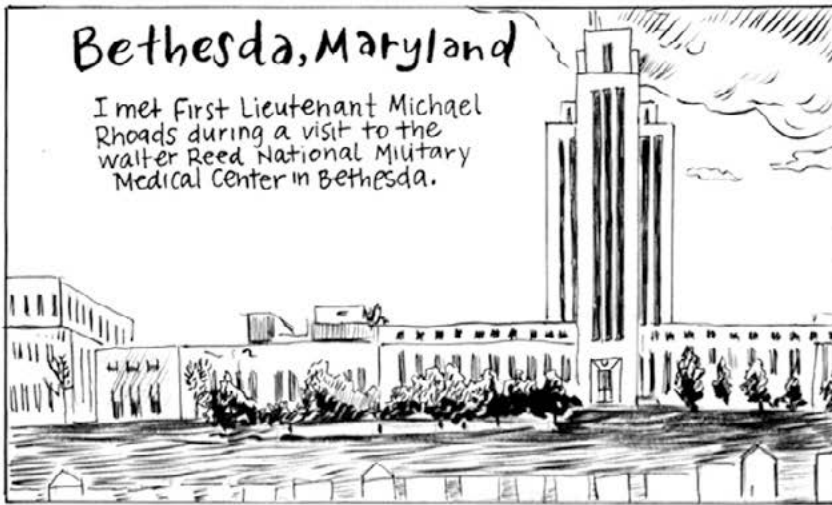 Bethesda, Maryland
I met First Lieutenant Michael
Rhoads during a visit to the
Walter Reed National Military
Medical Center in Bethesda.